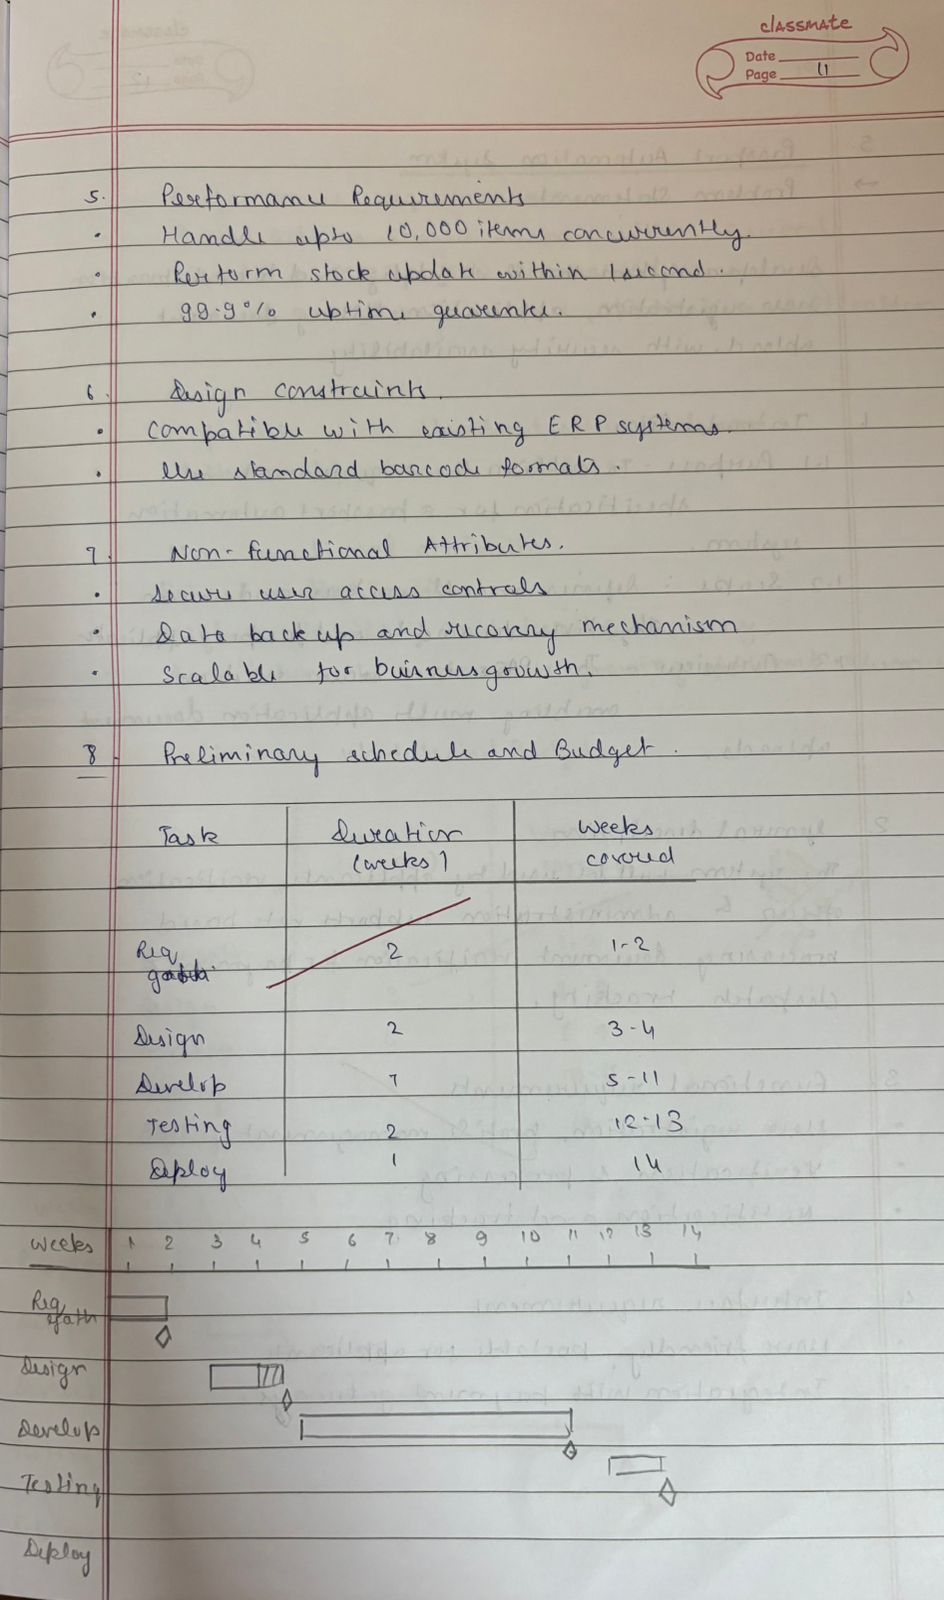 classmate
Date
Page 11
5. Performance Requirements
• Handle upto 10,000 items concurrently.
• Perform stock update within 1 second.
• 99.9% uptime guarentee.
6. Design constraints.
• Compatible with existing ERP systems.
• Use standard barcode formats.
7. Non-functional Attributes.
• Secure user access controls
• Data back up and recovery mechanism
• Scalable for buisness growth.
8. Preliminary schedule and Budget.
Task Duration (weeks) Weeks covered
Req 2 1-2
Design 2 3-4
Develop 7 5-11
Testing 2 12-13
Deploy 1 14
Weeks 1 2 3 4 5 6 7 8 9 10 11 12 13 14
Req gath
Design
Develop
Testing
Deploy